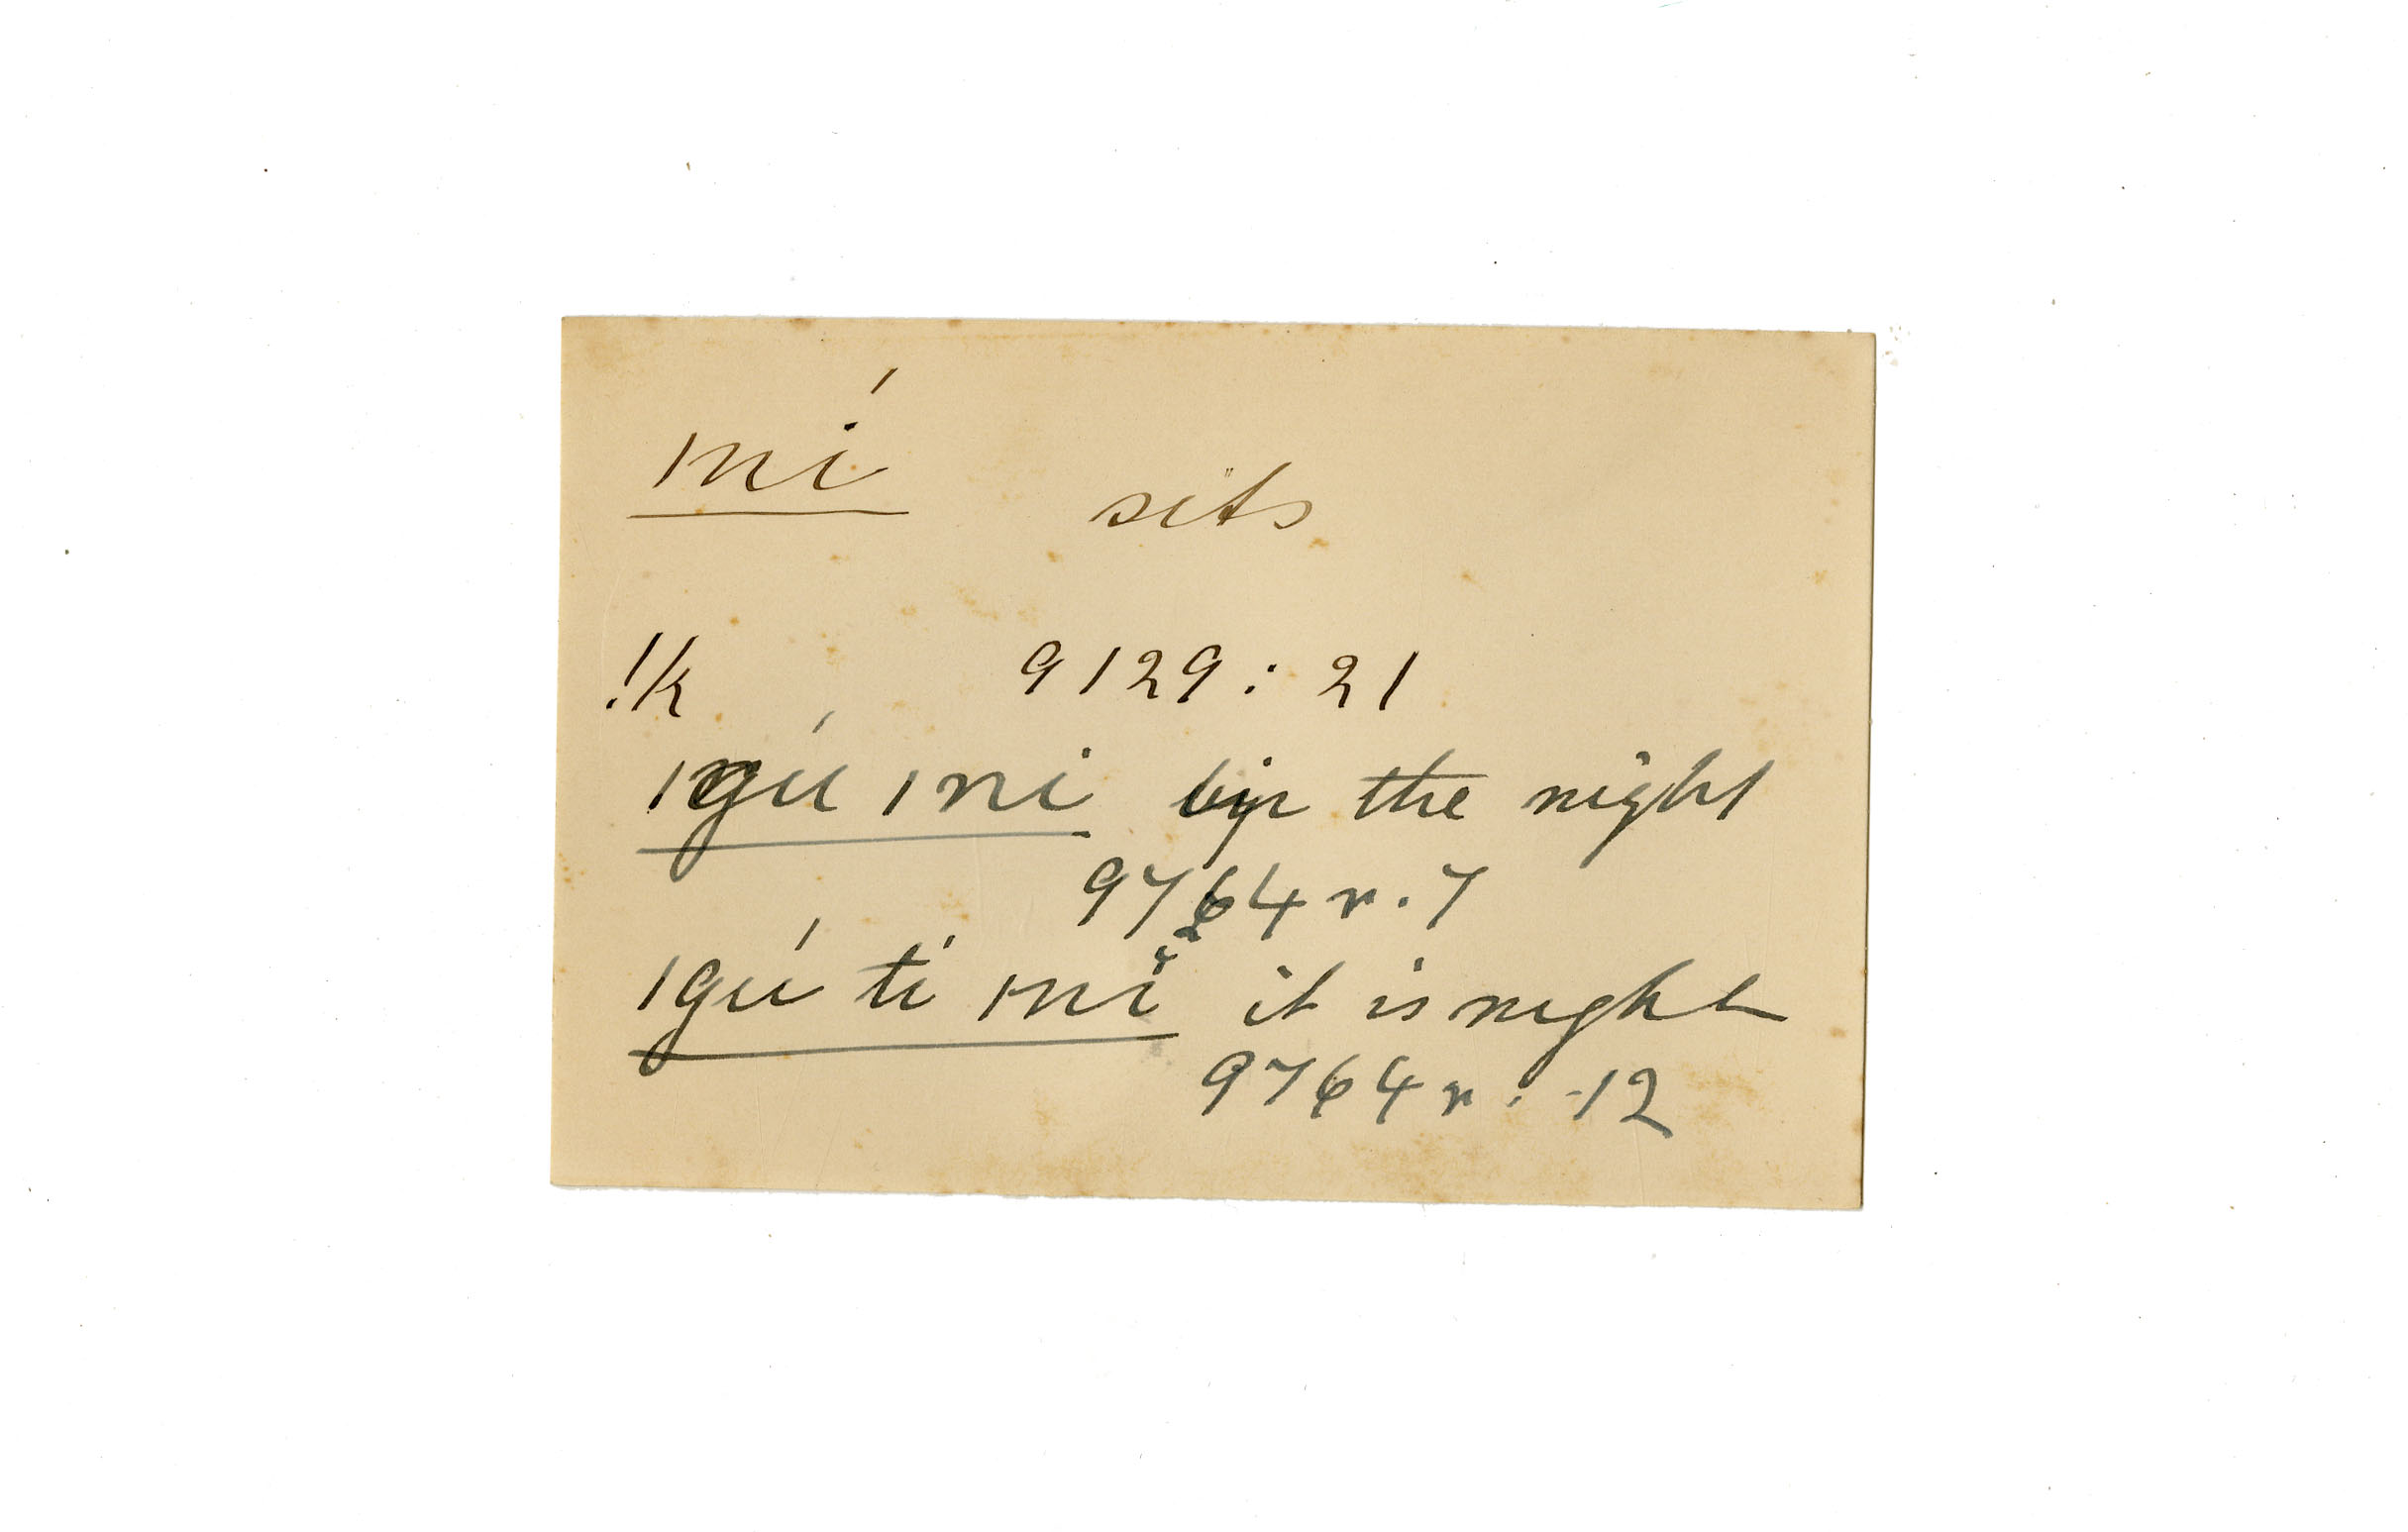 |ní sits
!k 9129 : 21
|gú |ni in the night
9764 r. 7
|gú ti |nĭ it is night
9764 r. 12